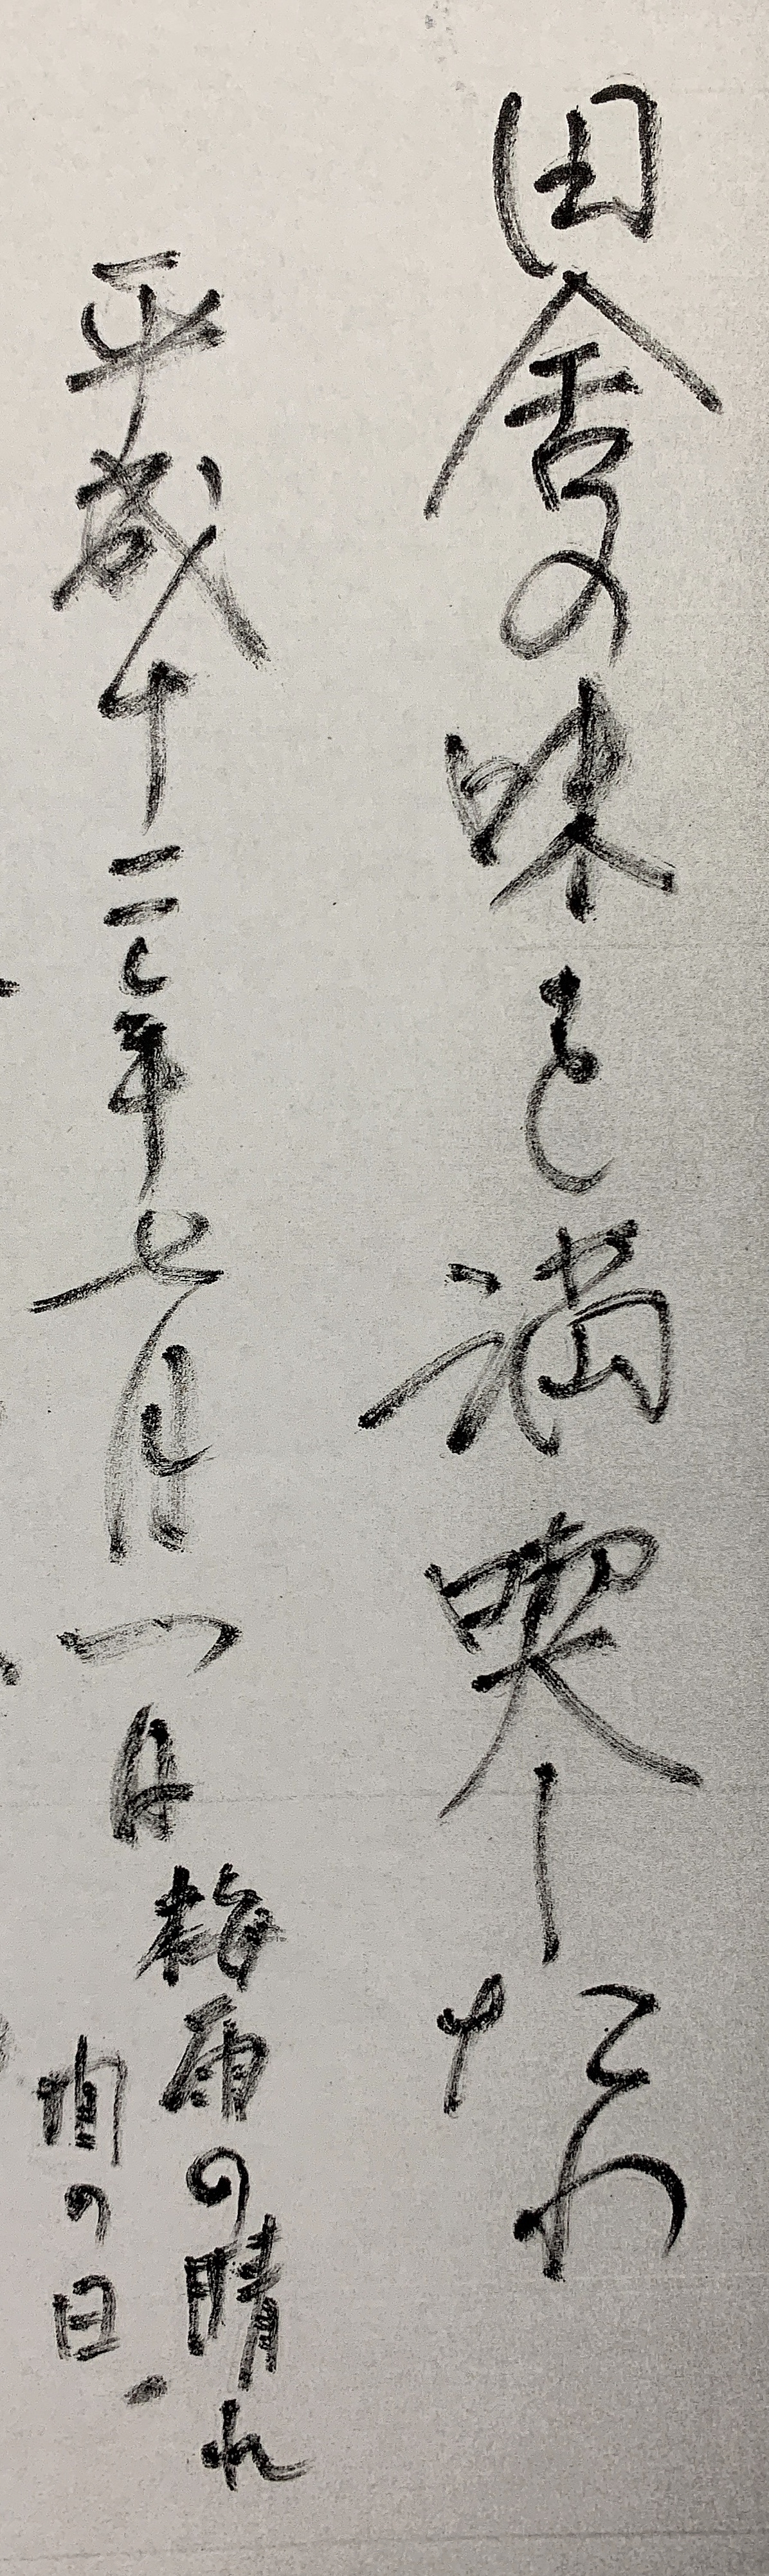 田舎の味を満喫したわ
平成十二年七月一日
梅雨の晴れ
間の日